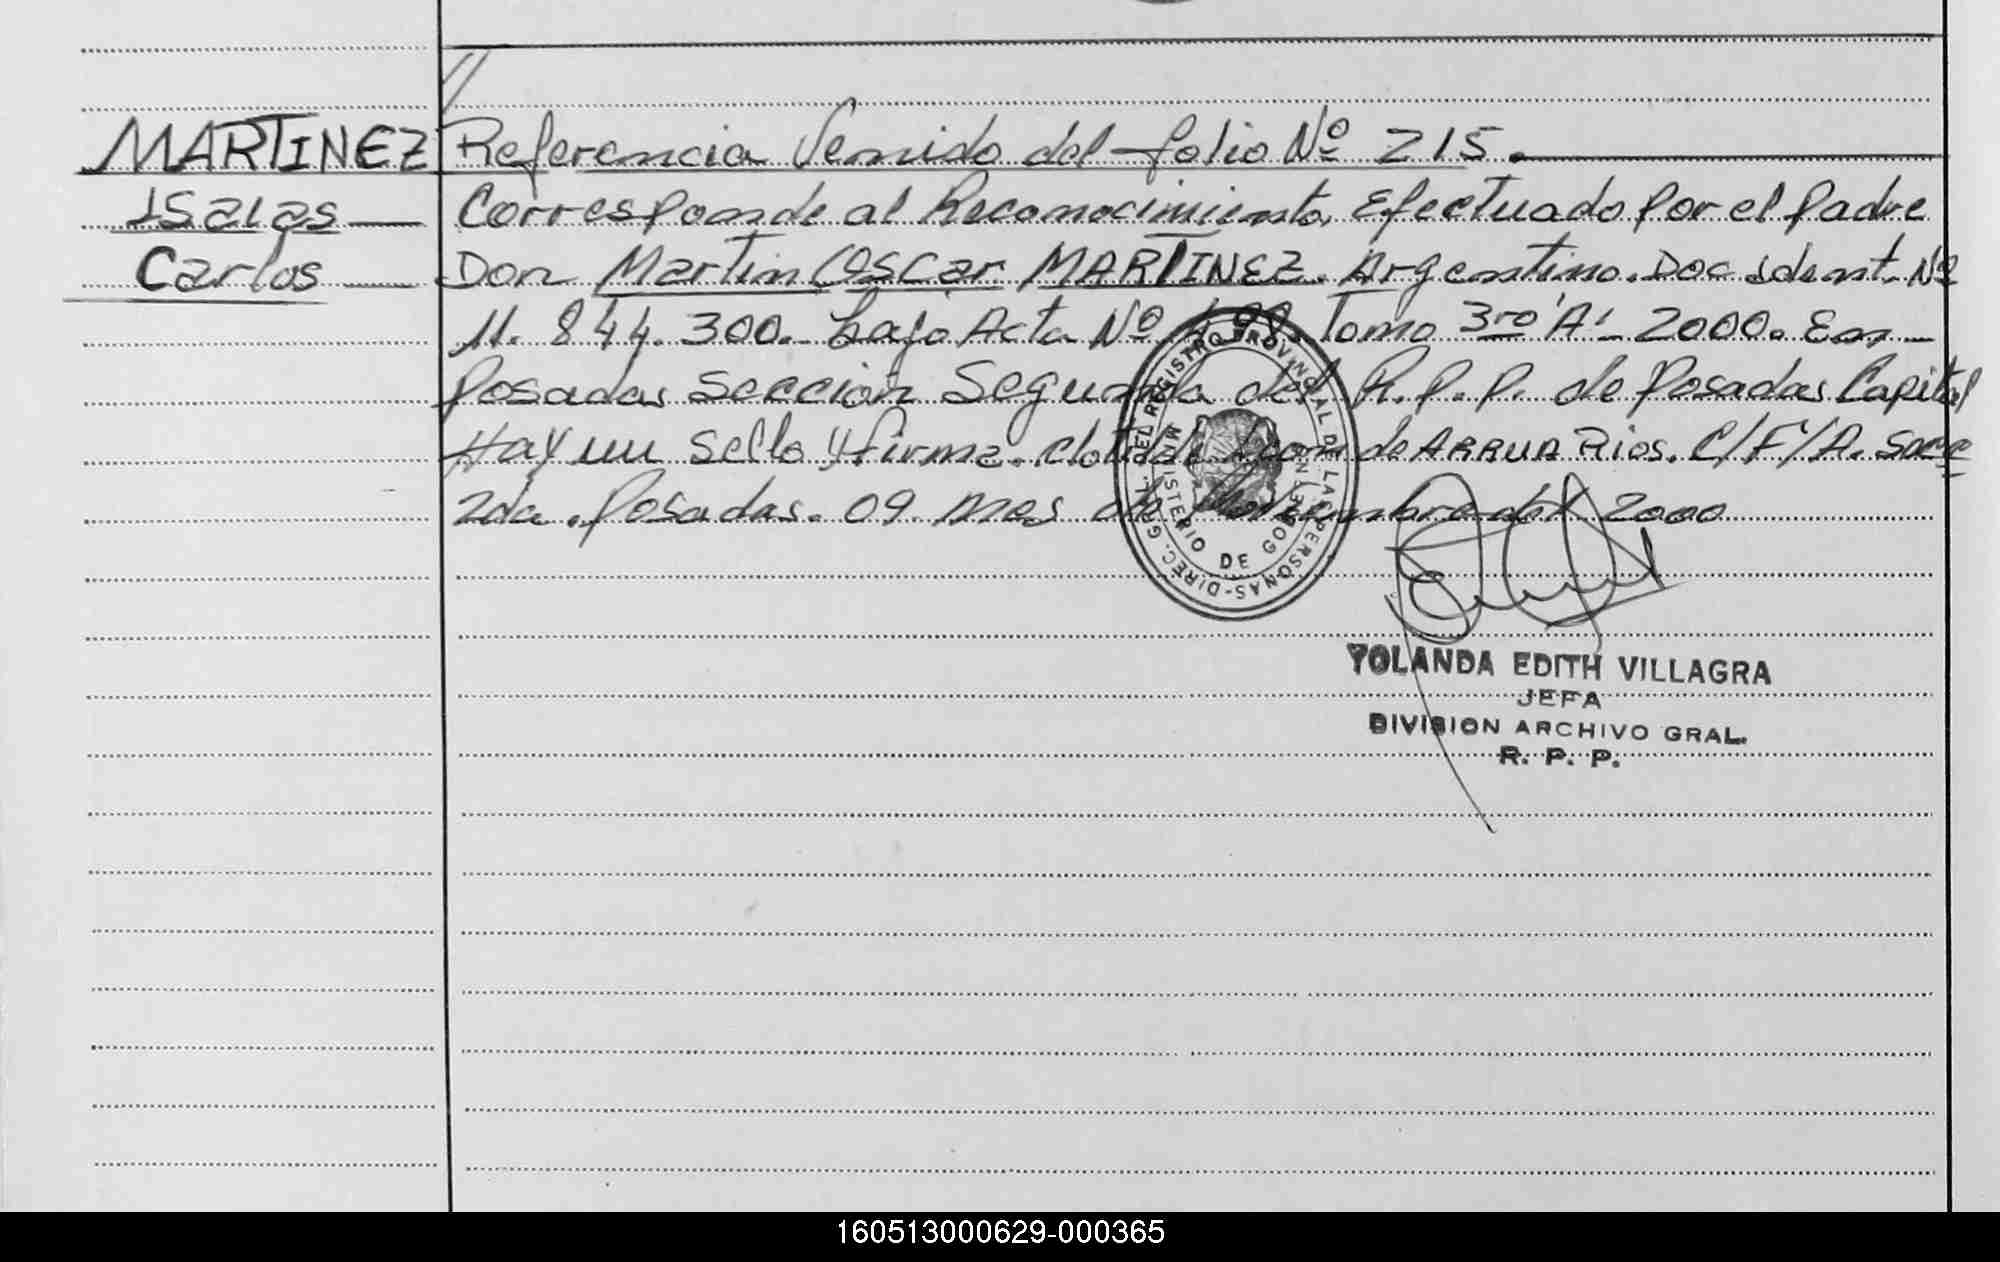 MARTINEZ Referencia Venido del folio Nº 215.
Isaias Corresponde al Reconocimiento Efectuado por el padre
Carlos Don Martin Oscar MARTINEZ. Argentino. Doc ident. Nº
11. 844. 300. bajo Acta Nº 198. Tomo 3ro "A" - 2000. En
Posadas Sección Segunda del R. P. P. de Posadas Capital
Hay un Sello y firma. Clotilde de ARRUA Rios. C/F/A. Secc
2da. Posadas. 09 mes de Noviembre del 2000
DIREC. GRAL. DEL REGISTRO PROVINCIAL DE LAS PERSONAS
MINISTERIO DE GOBIERNO
YOLANDA EDITH VILLAGRA
JEFA
DIVISION ARCHIVO GRAL.
R. P. P.
160513000629-000365